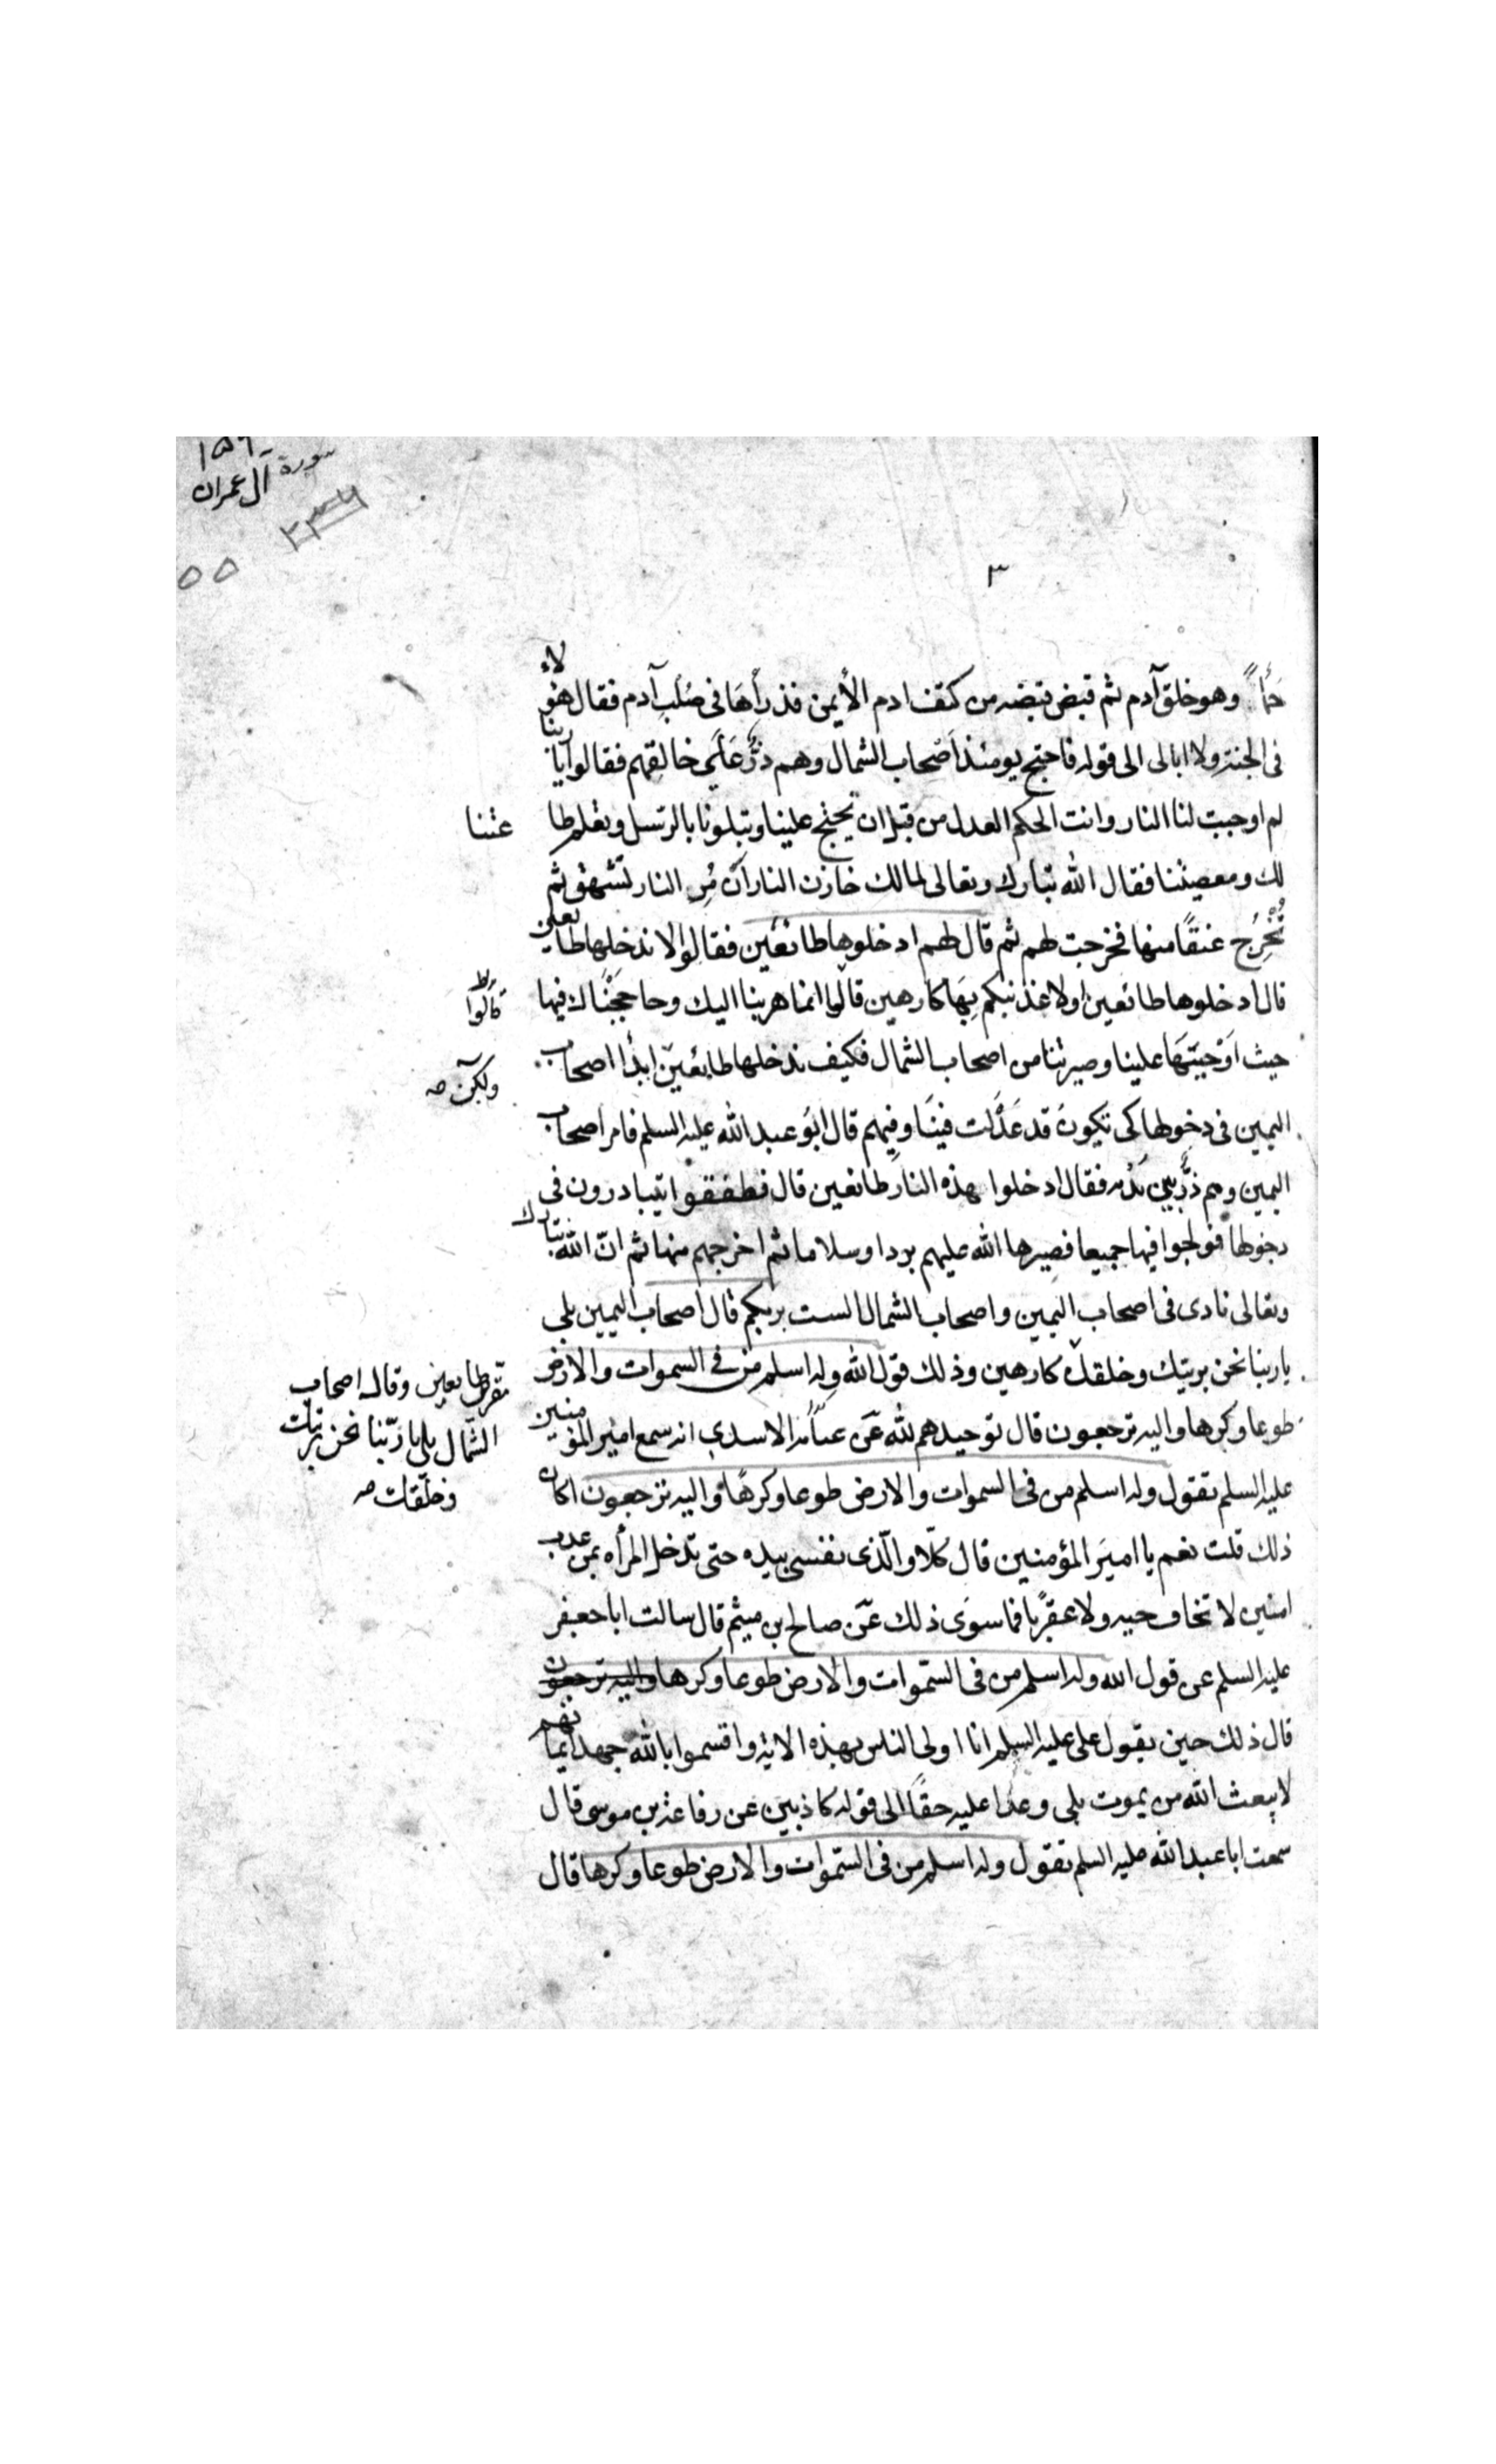 ١٥٩
سورة
آل عمران
٥٥
٣
حمأ وهو خلق آدم ثم قبض قبضه من كتف ادم الأيمن فذرأها فى صلب آدم فقال هؤلاء
فى الجنة ولا ابالى الى قوله فاحتج يومئذ اصحاب الشمال وهم ذر على خالقهم فقالوا يا ربنا
لم اوجبت لنا النار وانت الحكم العدل من قبل ان تحتج علينا وتبلونا بالرسل وتعلم طا عتنا
لك ومعصيتنا فقال الله تبارك وتعالى لمالك خازن النار ان مر النار تشهق ثم
تخرج عنقًا منها فخرجت لهم ثم قال لهم ادخلوها طائعين فقالوا لا ندخلها طايعين
قال ادخلوها طائعين اولا عذبنكم بها كارهين قالوا انما هربنا اليك وحاججناك فيها
قالوا
حيث اوجبتها علينا وصيرتنا من اصحاب الشمال فكيف ندخلها طائعين ابدأ اصحاب
ولكن صه
اليمين فى دخولها كى تكون قد عدلت فينا وفيهم قال ابو عبد الله عليه السلم فامر اصحاب
اليمين وهم ذر بين يديه فقال ادخلوا هذه النار طائعين قال فطفقوا يتبادرون فى
دخولها فولجوا فيها جميعا فصيرها الله عليهم بردا وسلاما ثم اخرجهم منها ثم ان الله تبارك
وتعالى نادى فى اصحاب اليمين واصحاب الشمال الست بربكم قال اصحاب اليمين بلى
يا ربنا نحن بريتك وخلقك كارهين وذلك قول الله وله اسلم من فى السموات والارض
مقرين طايعين وقال اصحاب
الشمال بلى يا ربنا نحن بريتك
وخلقك صه
طوعا وكرها واليه ترجعون قال توحيدهم لله عن عباية الاسدى انه سمع امير المؤمنين
عليه السلم يقول وله اسلم من فى السموات والارض طوعا وكرها واليه ترجعون اكان
ذلك قلت نعم يا امير المؤمنين قال كلا والذى نفسى بيده حتى تدخل المرأه بمن عذب
امنين لا تخاف حيه ولا عقربًا فما سوى ذلك عن صالح بن ميثم قال سالت ابا جعفر
عليه السلم عن قول الله وله اسلم من فى السموات والارض طوعا وكرها واليه ترجعون
قال ذلك حين يقول على عليه السلم انا اولى الناس بهذه الاية واقسموا بالله جهد ايمانهم
لا يبعث الله من يموت بلى وعدا عليه حقًا الى قوله كاذبين عن رفاعة بن موسى قال
سمعت ابا عبد الله عليه السلم يقول وله اسلم من فى السموات والارض طوعا وكرها قال